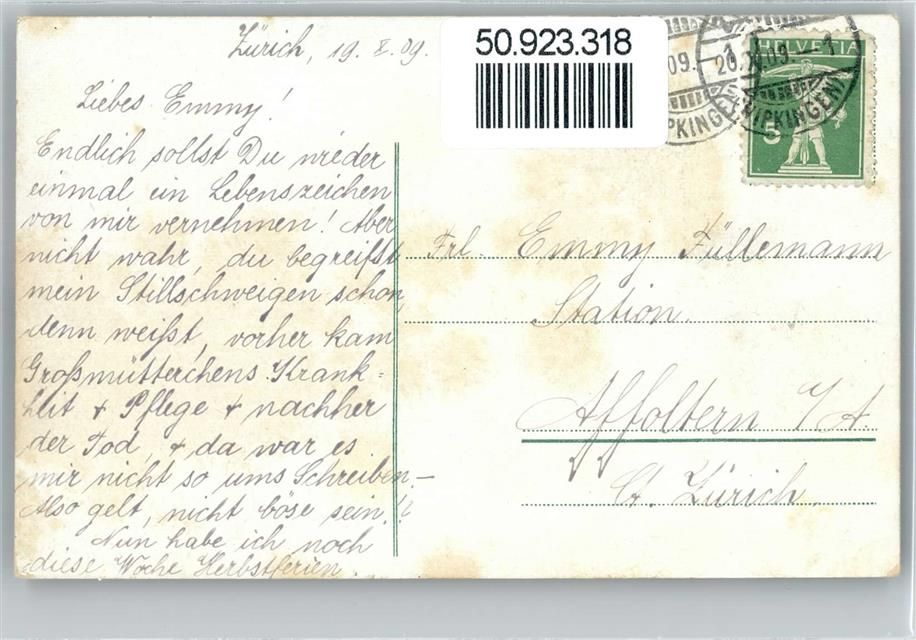 Zürich, 19. X. 09.
50.923.318
Liebes Emmy!
Endlich sollst Du wieder
einmal ein Lebenszeichen
von mir vernehmen! Aber
nicht wahr, du begreifst
mein Stillschweigen schon,
denn weißt, vorher kam
Großmütterchens Krank=
heit + Pflege + nachher
der Tod, + da war es
mir nicht so ums Schreiben.—
Also gelt, nicht böse sein!?
Nun habe ich noch
diese Woche Herbstferien.
HELVETIA
5
20. X. 09. – 1
(WIPKINGEN)
Frl. Emmy Füllemann
Station
Affoltern a/A.
Ct. Zürich